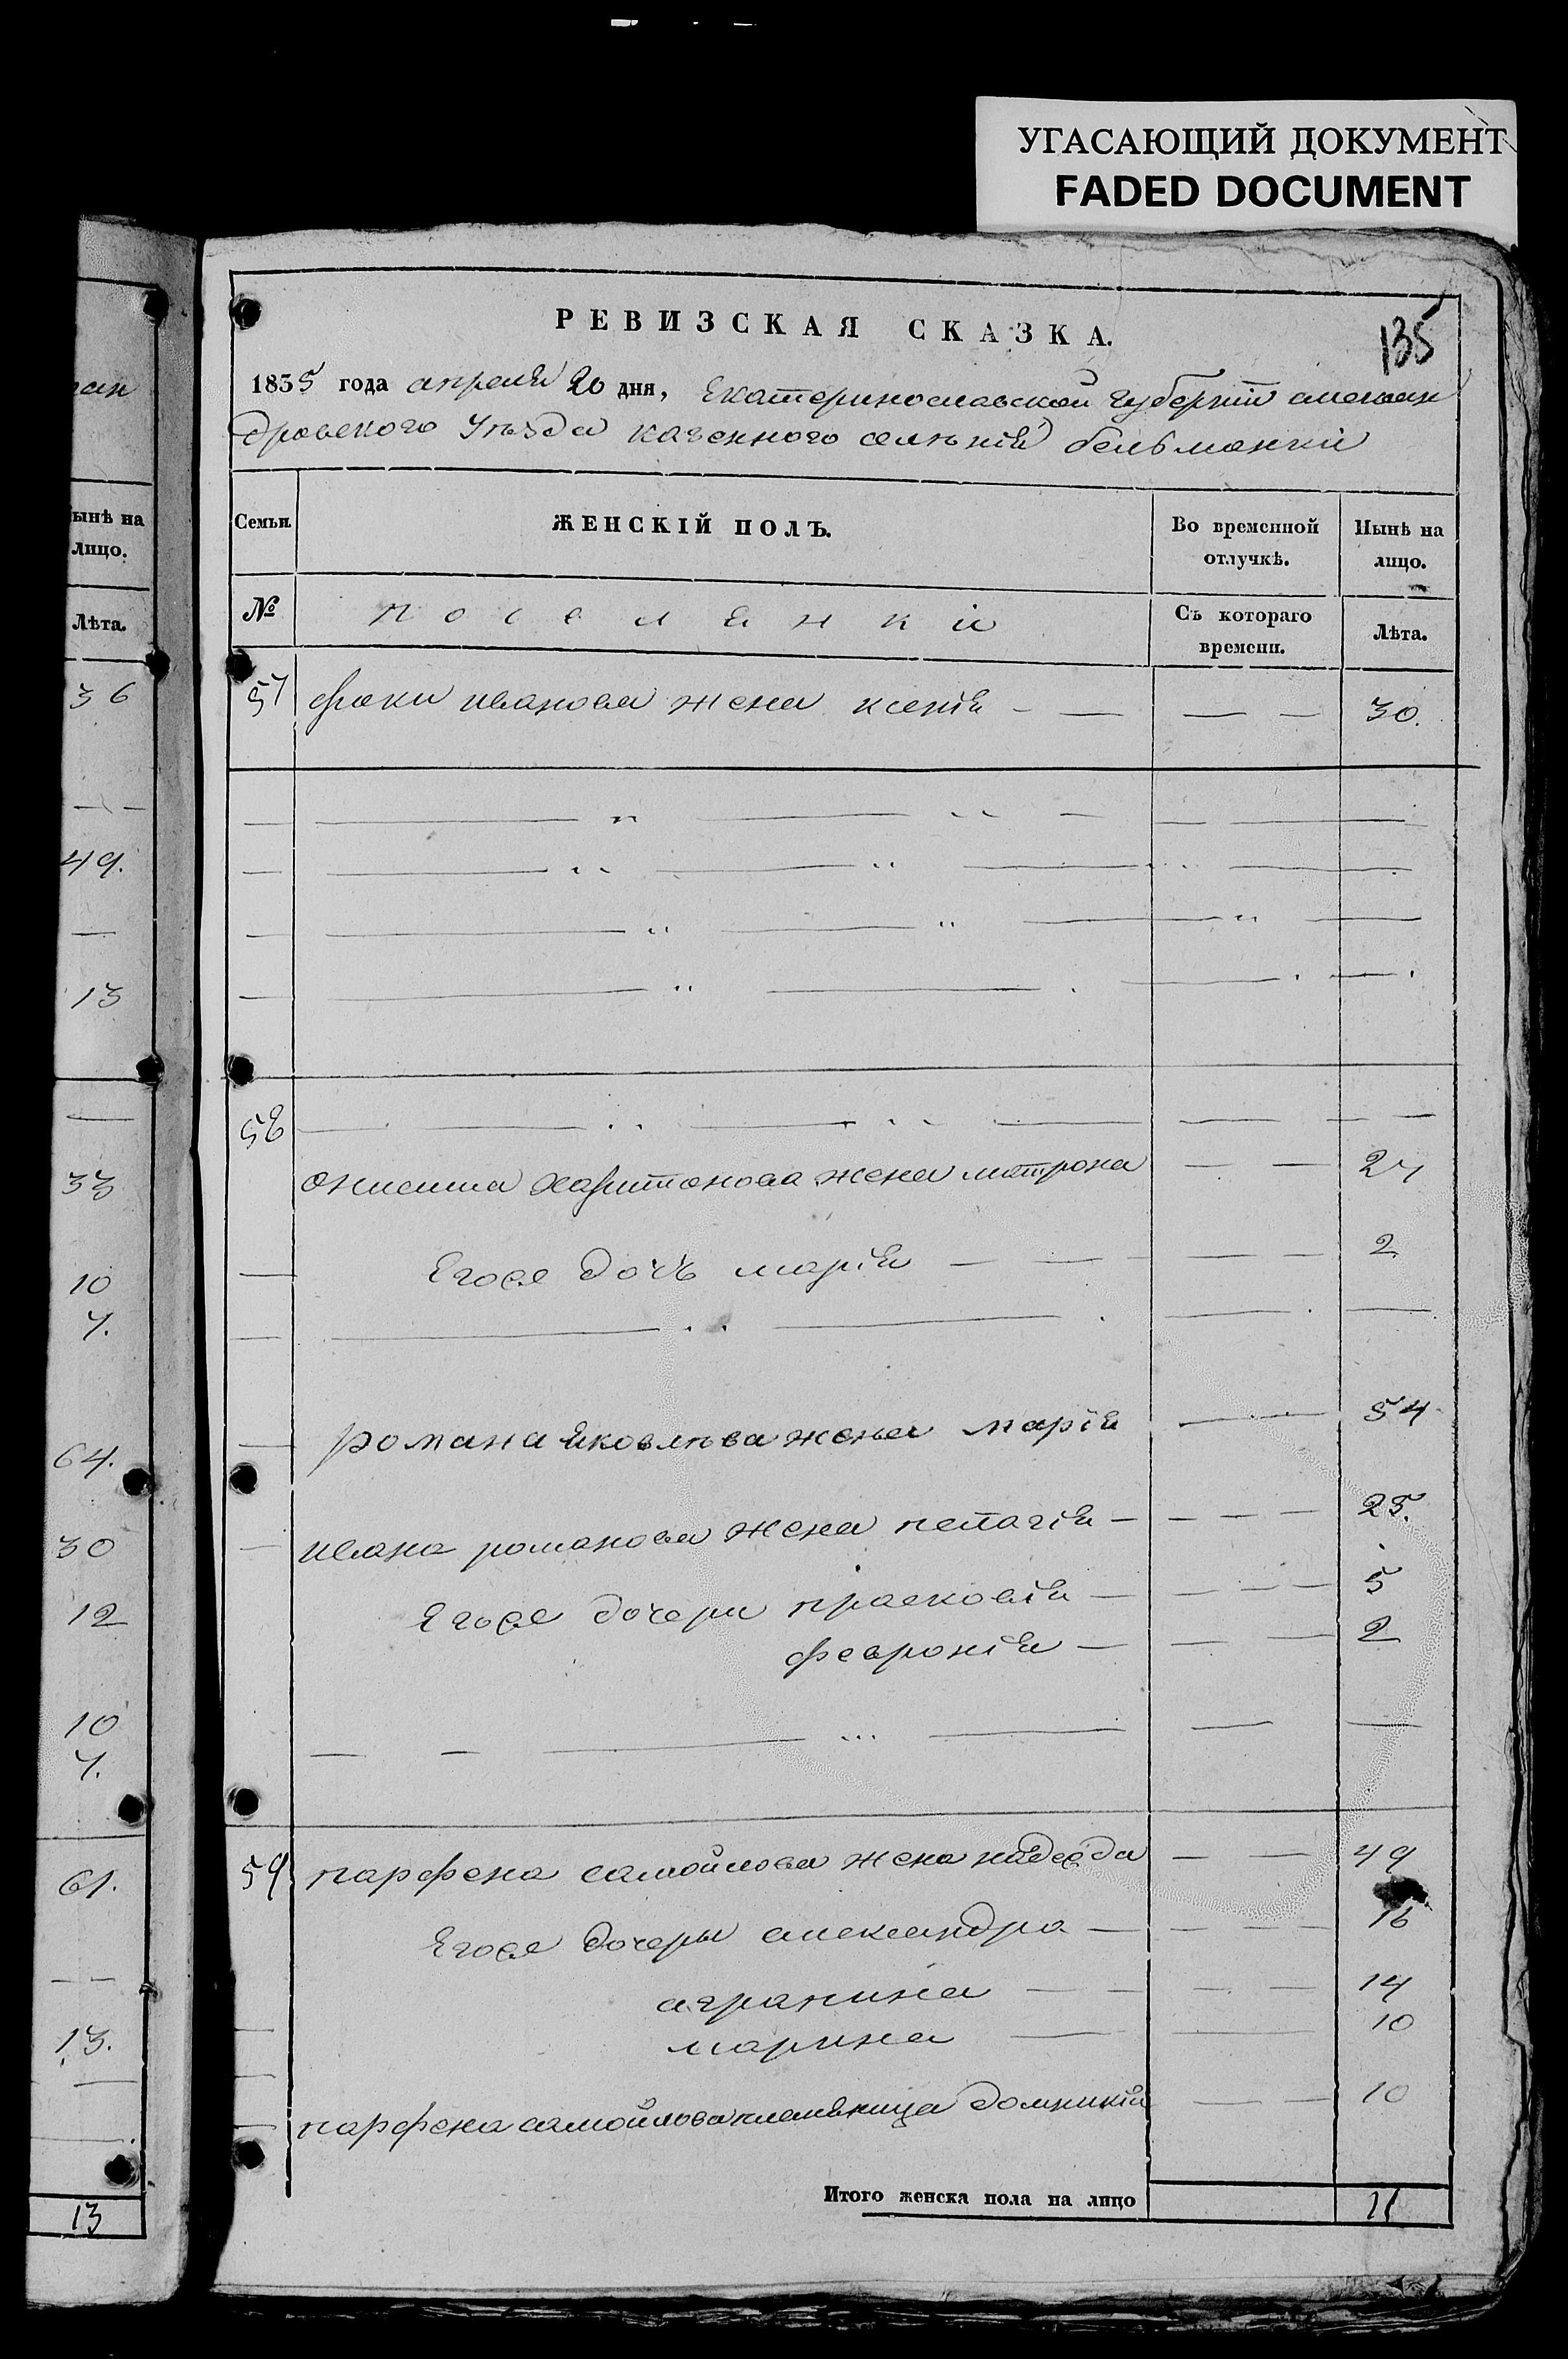 УГАСАЮЩИЙ ДОКУМЕНТ
FADED DOCUMENT
ынѣ на
лицо.
Лѣта.
36
49.
13
33
10
7.
64.
30
12
10
7.
61.
13.
13
РЕВИЗСКАЯ СКАЗКА.
135
1835 года апреля 20 дня, Екатеринославской губерніи алексан
дровского уѣзда казенного селѣнія бельманки
Семьи. ЖЕНСКІЙ ПОЛЪ. Во временной отлучкѣ. Нынѣ на лицо.
№ поселянки Съ котораго времени. Лѣта.
57 фоки иванова жена ксенія — — — — 30.
58
онисима харитонова жена матрона — — 27
Егоже дочъ марія — — — — 2
романа яковлѣва жена марія — — 54
ивана романова жена пелагія — — — — 25.
Егоже дочери прасковія — — — — 5
февронія — — — 2
59 парфена самойлова жена надежда — — 49
Егоже дочеры александра — — — — 16
аграпина — — — — 14
марина — — 10
парфена самойлова племяница домникія — — 10
Итого женска пола на лицо 11